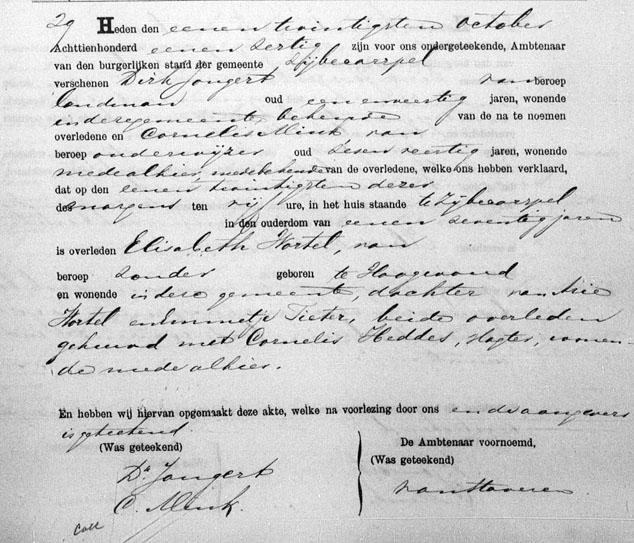 29 Heden den eenen twintigsten October
Achttienhonderd eenen zestig zijn voor ons ondergeteekende, Ambtenaar
van den burgerlijken stand der gemeente Zijbecarspel
verschenen Dirk Jongert van beroep
landman oud een en veertig jaren, wonende
in deze gemeente, bekende van de na te noemen
overledene en Cornelis Mink van
beroep onderwijzer oud zesen veertig jaren, wonende
mede alhier, mede bekende van de overledene, welke ons hebben verklaard,
dat op den eenen twintigsten dezer
des morgens ten vijf ure, in het huis staande te Zijbecarspel
in den ouderdom van eenen zeventig jaren
is overleden Elisabeth Hortel, van
beroep zonder geboren te Hoogwoud
en wonende in deze gemeente, dochter van Arie
Hortel en Emmetje Pieter, beide overleden
gehuwd met Cornelis Heddes, wonen-
de mede alhier.
En hebben wij hiervan opgemaakt deze akte, welke na voorlezing door ons en de aangevers
is geteekend
(Was geteekend) De Ambtenaar voornoemd,
Dk Jongert (Was geteekend)
C. Mink.
Coll